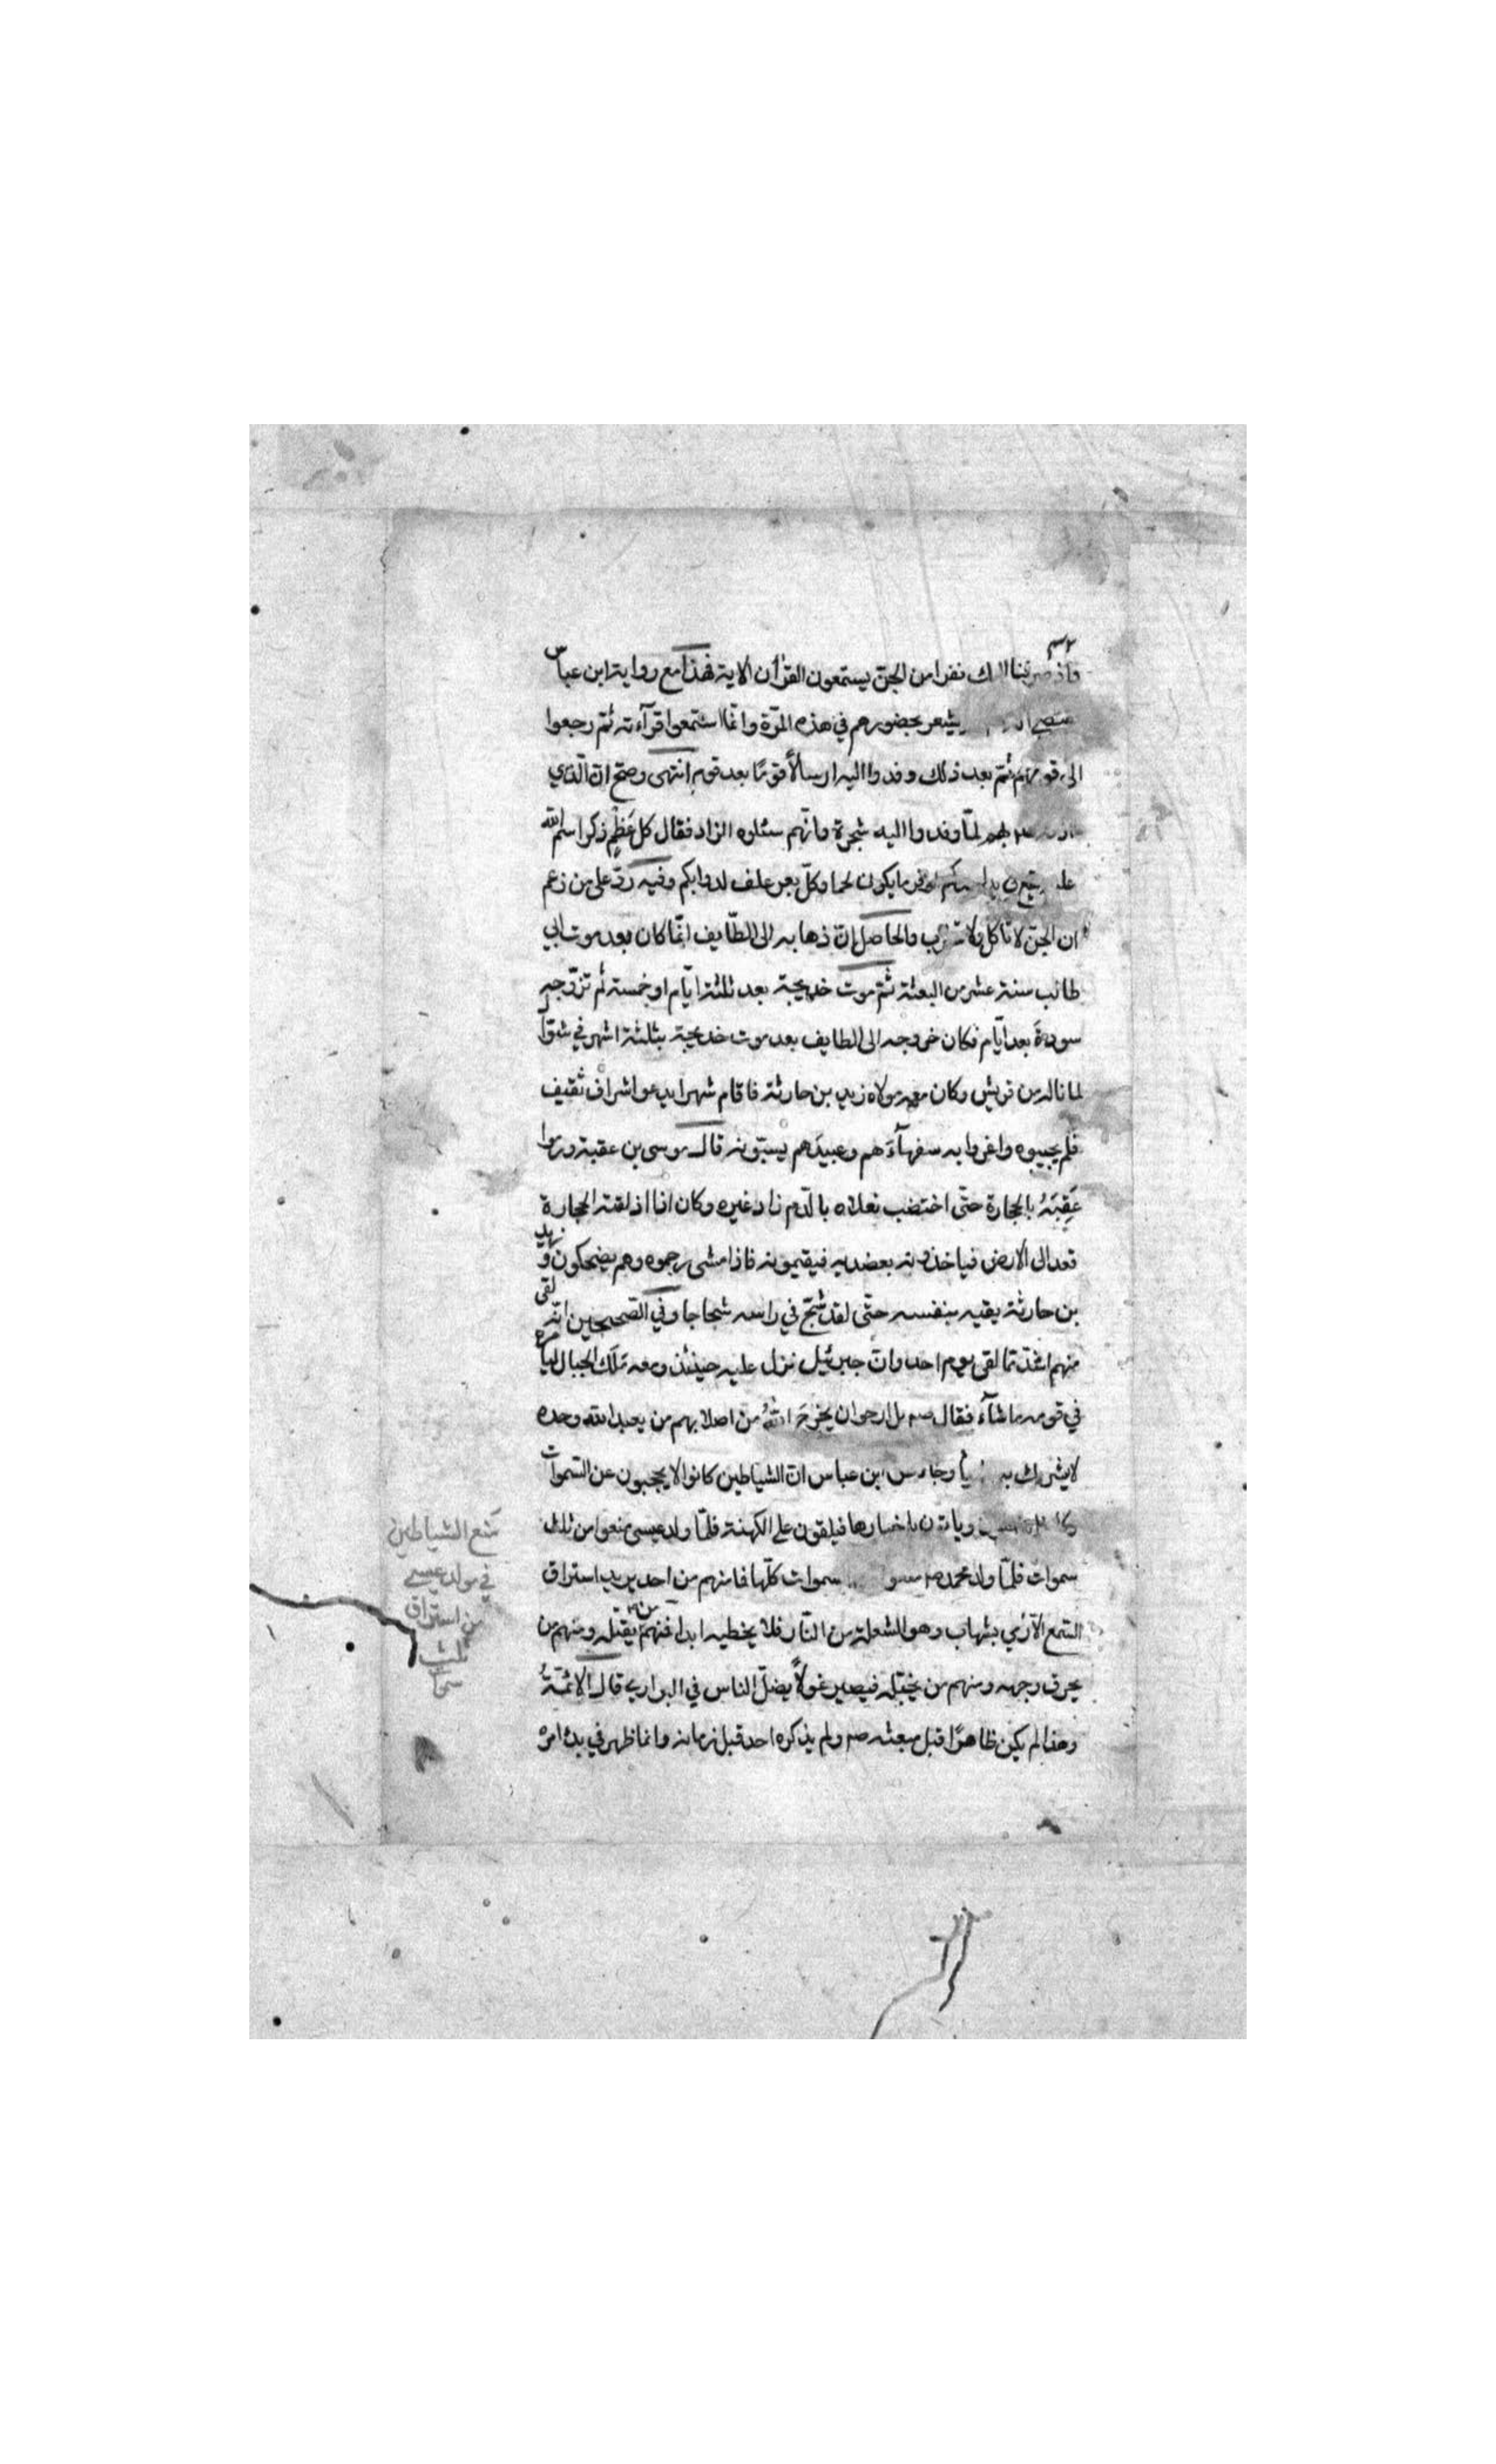 واذ صرفنا اليك نفرا من الجن يستمعون القرآن الاية فهذا مع رواية ابن عباس
يشعر بحضورهم في هذه المرّة وانّما استمعوا قرآءته ثم رجعوا
الى قومهم ثمّ بعد ذلك وفدوا اليه ارسالاً قومًا بعد قوم انتهى وصحّ انّ الّذي
لمّا وفدوا اليه شجرة وانّهم سئلوه الزاد فقال كل عَظْمٍ ذكر اسم الله
عليه يقع في اوفر ما يكون لحما وكلّ بعر علف لدوابكم وفيه ردّ على من زعم
ان الجنّ لا تأكل ولا تشرب والحاصل انّ ذهابه الى الطّايف انّما كان بعد موت ابي
طالب سنة عشر من البعثة ثمّ موت خديجة بعد ثلثة ايّام او خمسة ثم تزوّجه
سودةَ بعد ايّام فكان خروجه الى الطايف بعد موت خديجة بثلثة اشهر في شوّال
لما ناله من قريش وكان معه مولاه زيد بن حارثة فاقام شهرا يدعو اشراف ثقيف
فلم يجيبوه واغروا به سفهآءَهم وعبيدَهم يسبّونه قال موسى بن عقبة ورموا
عَقِبَهُ بالحجارة حتّى اختضب نعلاه بالدّم زاد غيره وكان اذا اذلقته الحجارة
قعد الى الارض فياخذونه بعضديه فيقيمونه فاذا مشى رجموه وهم يضحكون وزيد
بن حارثة يقيه بنفسه حتّى لقد شجّ في راسه شجاجا وفي الصّحيحين انّه لقى
منهم اشدّ ممّا لقى يوم احد وانّ جبرئيل نزل عليه حينئذ ومعه مَلَك الجبال ليأمره
في قومه ما شآء فقال صم بل ارجو ان يخرج اللهُ من اصلابهم من يعبد الله وحده
لا يشرك به شيأ وجاء من ابن عباس انّ الشياطين كانوا لا يحجبون عن السّموات
وياتون باخبارها فيلقون على الكهنة فلمّا ولد عيسى منعوا من ثلث
سموات فلمّا ولد محمد صم سموات كلّها فما منهم من احد يريد استراق
السّمع الّا رُمي بشهاب وهو الشعلة من النّار فلا يخطيه ابدا فمنهم من يقتله ومنهم من
يحرق وجهه ومنهم من يخبّله فيصير غولاً يضلّ الناس في البراري قال الائمّةُ
وهذا لم يكن ظاهرًا قبل مبعثه صم ولم يذكره احد قبل زمانه وانما ظهر في بدء امره
منع الشياطين
في مولد عيسى
من استراق
ثلث